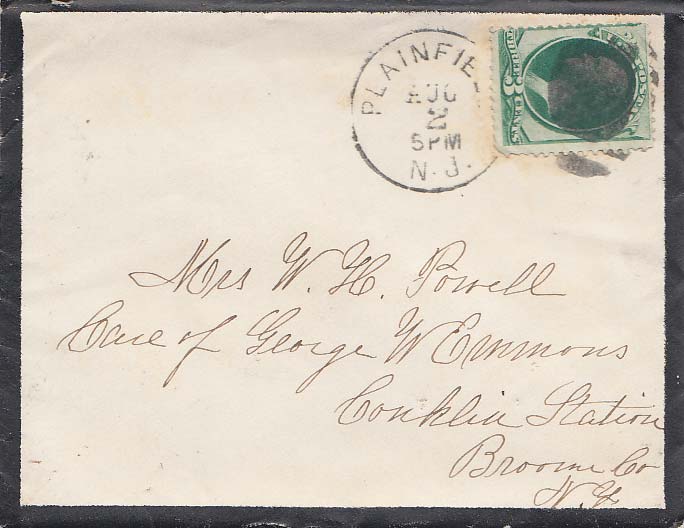 PLAINFIE
AUG
2
5PM
N.J.
Mrs W. H. Powell
Care of George W Emmons
Conklin Station
Broome Co
N.Y.